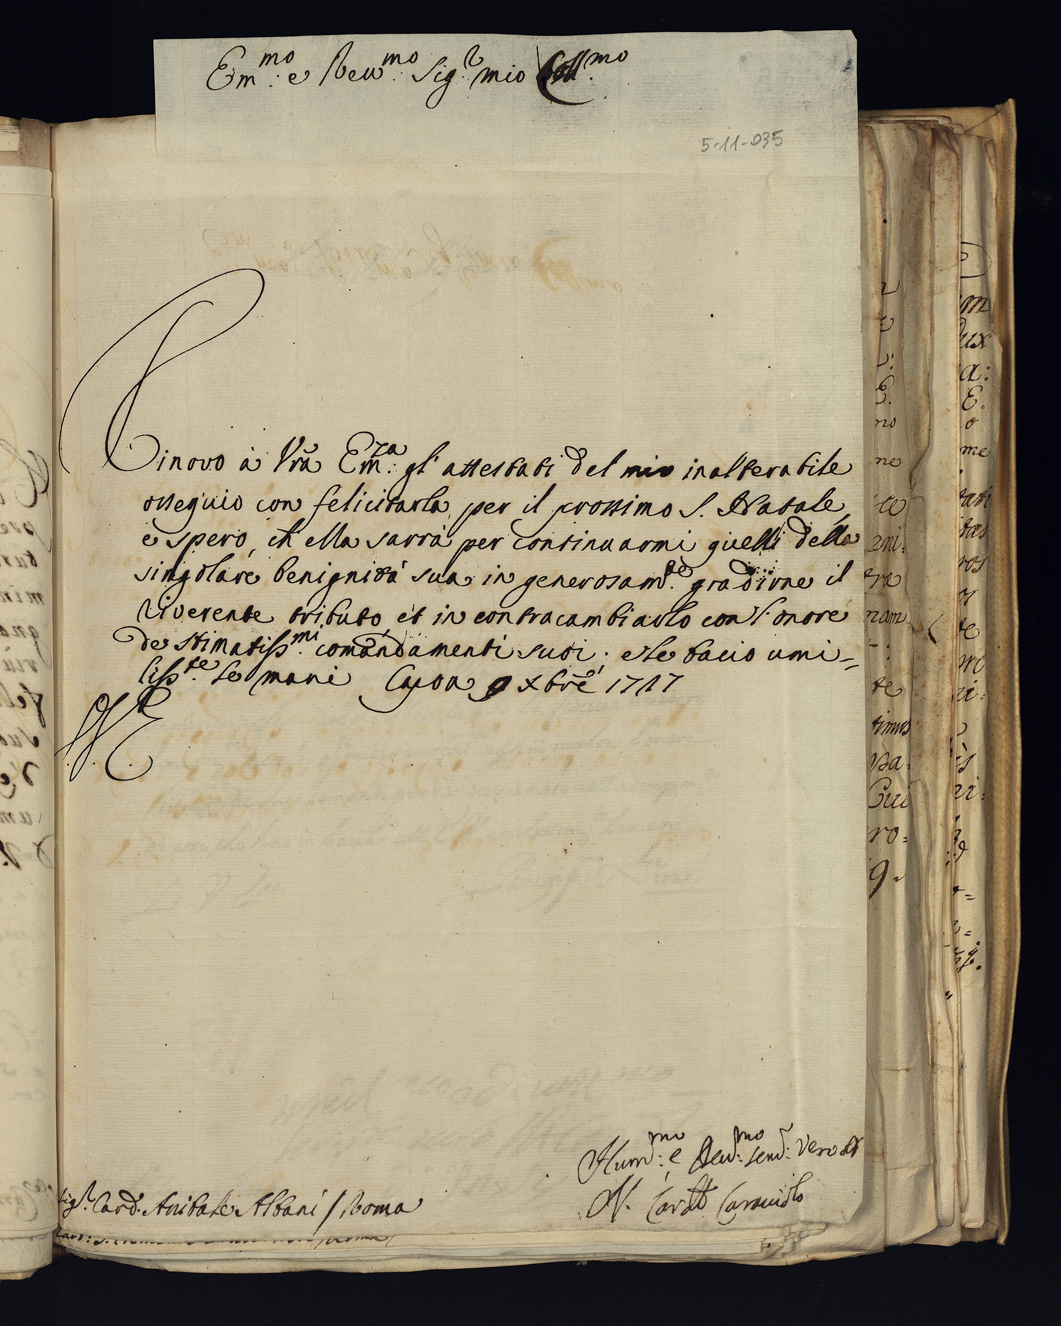 Em.mo e Reu.mo Sig.r mio Coll.mo
5-11-035
Rinovo à Vrã Em.za gl' attestati del mio inalterabile
osseguio con felicitarla per il prossimo S. Natale,
e spero, ch ella sarrà per continuarmi quelli della
singolare benignità sua in generosam.te gradirne il
riverente tributo, et in contracambiarlo con l'onore
de stimatiss.mi comandamenti suoi; e le bacio umi=
liss.te le mani Capoa 9 Xbrẽ 1717
V. E.
Hum.mo e Deu.mo seru.r vero
N. Card. Caracciolo
Sig.r Card. Anibale Albani / Roma